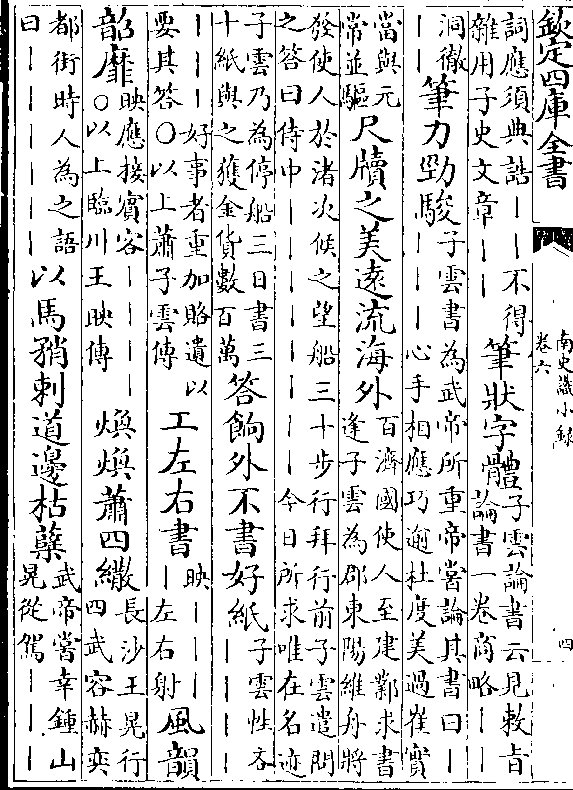 欽定四庫全書
南史識小錄
卷六
四
詞應須典誥丨丨不得
雜用子史文章丨丨丨
筆狀字體
子雲論書云見敕旨
論書一卷商略丨丨
洞徹
丨丨
筆力勁駿
子雲書為武帝所重帝嘗論其書曰丨
丨丨丨心手相應巧逾杜度美過崔實
當與元
常並驅
尺牘之美遠流海外
百濟國使人至建鄴求書
逢子雲為郡東陽維舟將
發使人於渚次候之望船三十步行拜行前子雲遣問
之答曰侍中丨丨丨丨丨丨丨丨今日所求唯在名迹
子雲乃為停船三日書三
十紙與之獲金貨數百萬
答餉外不書好紙
子雲性吝
丨丨丨丨
丨丨丨好事者重加賂遺以
要其答○以上蕭子雲傳
工左右書
映丨丨丨丨
丨左右射
風韻
韶靡
映應接賓客丨丨丨丨
○以上臨川王映傳
煥煥蕭四繖
長沙王晃行
四武容赫奕
都街時人為之語
曰丨丨丨丨丨
以馬矟刺道邊枯蘗
武帝嘗幸鍾山
晃從駕丨丨丨丨